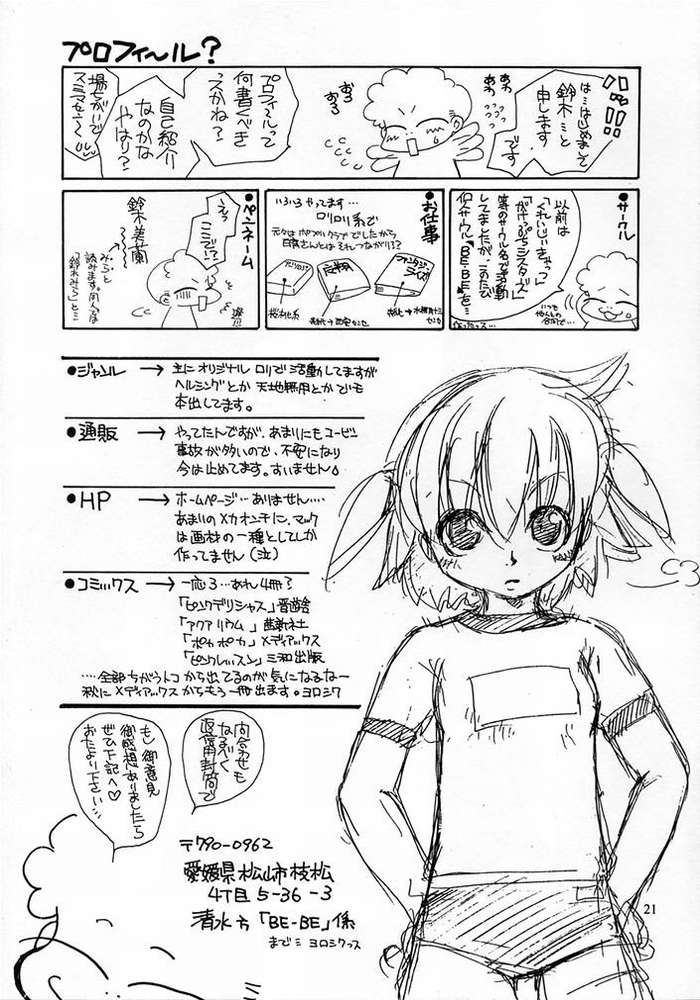 プロフィ〜ル?
は…はじめまして
鈴木…と
申します
です
あわ
あわ
おろ
おろ
プロフィールって
何書くべき
っスかね?
自己紹介
なのかな
やはり?
場ちがいで
スミマセ〜〜ン
●サークル
以前は
「くれいじぃきゃっつ」
「がけっぷちシスターズ」
等のサークル名で活動
してましたが、このたび
個人サークル『BE-BE』を…
作ったっス…
いつも
他人との
合同で…
●お仕事
いろいろやってます…
ロリロリ系で
●ペンネーム
えっ
ここで!?
鈴木美蘭
みらと
読みます。同人では
「鈴木みら」と…
●ジャンル → 主にオリジナルロリで活動してますが
ヘルシングとか天地無用とかでも
本出してます。
●通販 → やってたんですが、あまりにもユービン
事故が多いので、不安になり
今は止めてます。すいません。
●HP → ホームページ…ありません…
あまりのメカオンチに、マック
は画材の一種としてしか
作ってません(泣)
●コミックス → 一応3…あれ4冊?
「ピンクデリシャス」晋遊舎
「アクアリウム」茜新社
「ポカポカ」メディアックス
「ピンクレッスン」三和出版
…全部ちがうトコから出てるのが気になるなー
秋にメディアックスからもう一冊出ます。ヨロシク
問合わせも
なるべく
返信用封筒で
もし御意見
御感想ありましたら
ぜひ下記へ♡
おたより下さい…
〒790-0962
愛媛県松山市枝松
4丁目5-36-3
清水方「BE-BE」係
まで… ヨロシクっス
21